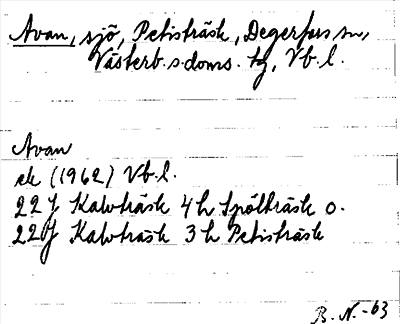 Avan, sjö, Petisträsk, Degerfors sn,
Västerb. s. doms. tg, Vb. l.
Avan
ek (1962) Vb. l.
22 J Kalvträsk 4 h Spölträsk o.
22 J Kalvträsk 3 h Petisträsk
B. N. -63